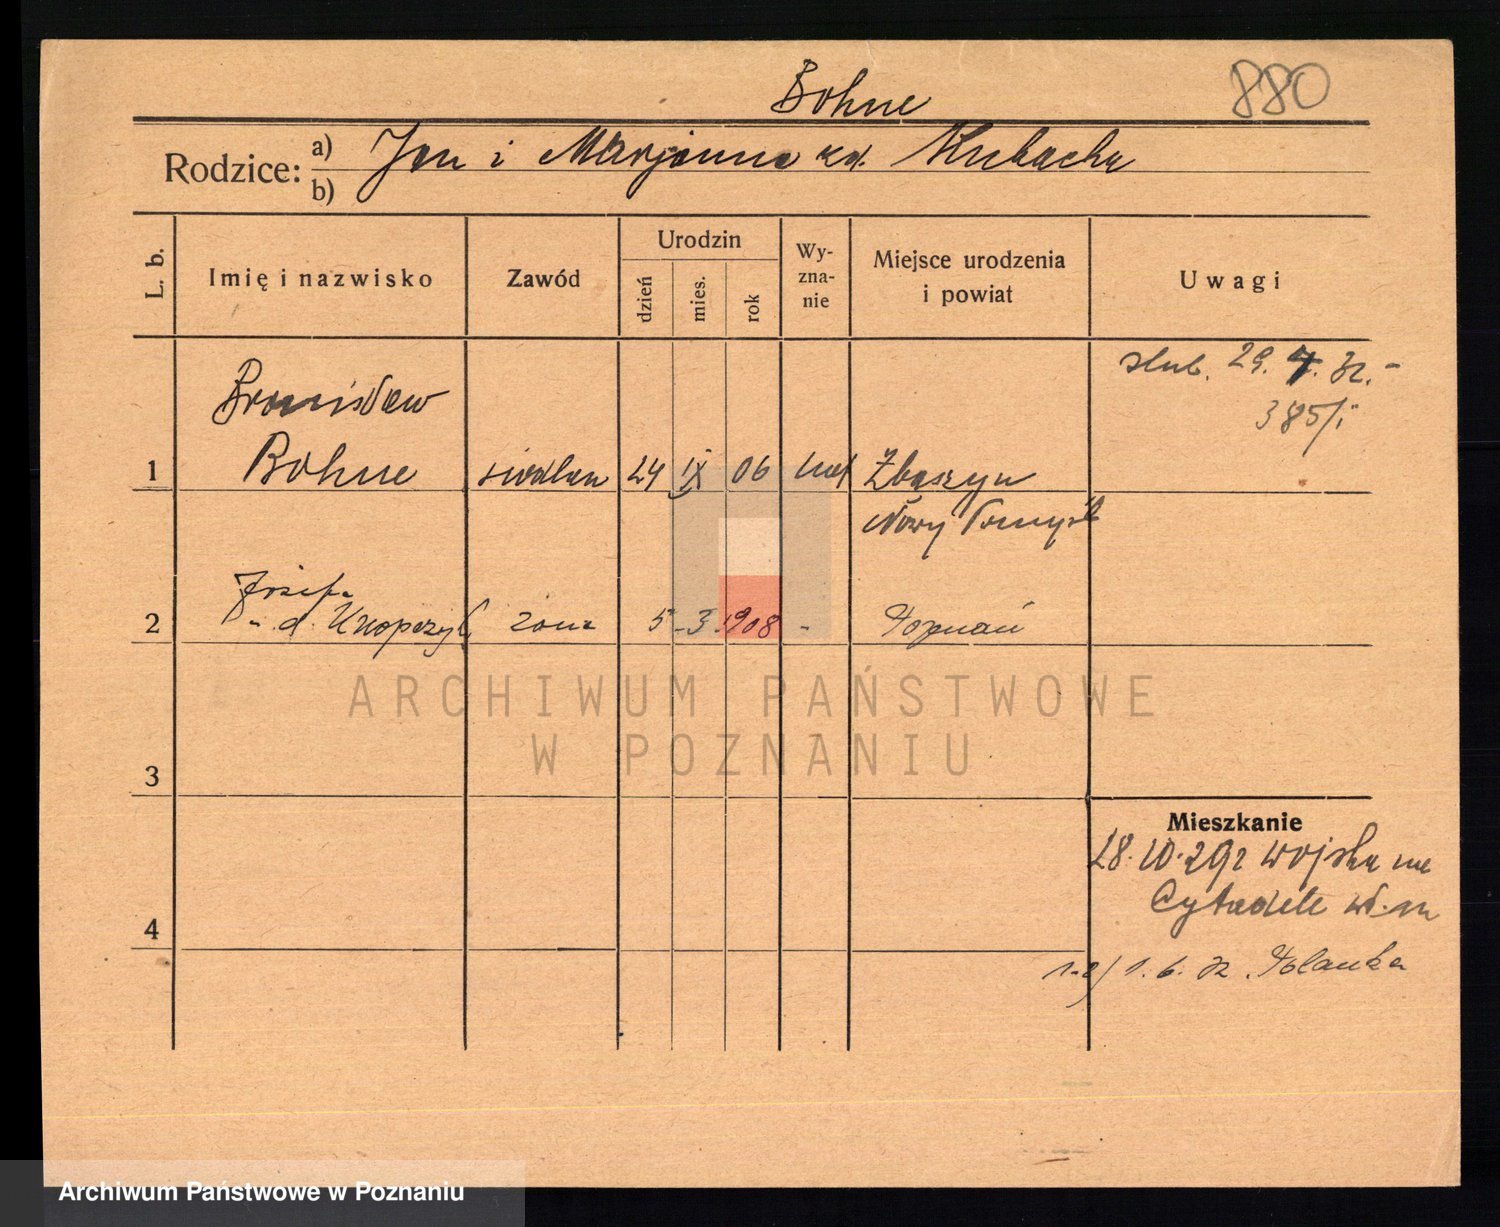 Bohne
880
Rodzice: a) Jan i Marjanna zd. Kubacha
b)
L. b.
Imię i nazwisko
Zawód
Urodzin
dzień
mies.
rok
Wy-
zna-
nie
Miejsce urodzenia
i powiat
Uwagi
ślub. 29. 4. 32.-
385/i
Bronisław
1 Bohne siodlarz 24 IX 06 kat Zbąszyn
Nowy Tomyśl
Józefa
2 d. Knopczyk żona 5 3 1908 - Poznań
ARCHIWUM PAŃSTWOWE
W POZNANIU
3
Mieszkanie
28.10.29 z wojska na
Cytadele
4
1-2) 1. 6. 32. Polanka
Archiwum Państwowe w Poznaniu